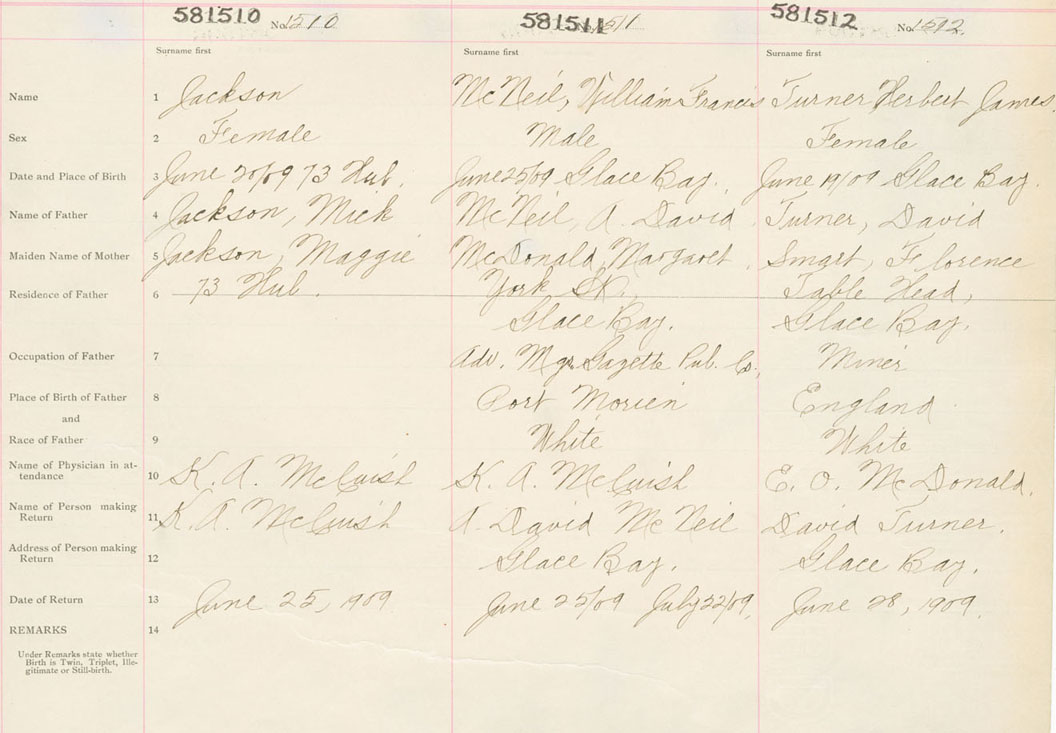 581510 No. 1510 581511 No. 1511 581512 No. 1512
Surname first Surname first Surname first
Name 1 Jackson McNeil, William Francis Turner Herbert James
Sex 2 Female Male Female
Date and Place of Birth 3 June 20/09 73 Hub. June 25/09 Glace Bay. June 19/09 Glace Bay.
Name of Father 4 Jackson, Mick McNeil, A. David Turner, David
Maiden Name of Mother 5 Jackson, Maggie McDonald, Margaret. Smart, Florence
Residence of Father 6 73 Hub. York St. Table Head,
Glace Bay. Glace Bay.
Occupation of Father 7 Adv. Mgr. Gazette Pub. Co., Miner
Place of Birth of Father 8 Port Morien England
and
Race of Father 9 White White
Name of Physician in at-
tendance 10 K. A. McCuish K. A. McCuish E. O. McDonald.
Name of Person making
Return 11 K. A. McCuish A. David McNeil David Turner.
Address of Person making
Return 12 Glace Bay. Glace Bay.
Date of Return 13 June 25, 1909 June 25/09 July 22/09 June 28, 1909
REMARKS 14
Under Remarks state whether
Birth is Twin, Triplet, Ille-
gitimate or Still-birth.